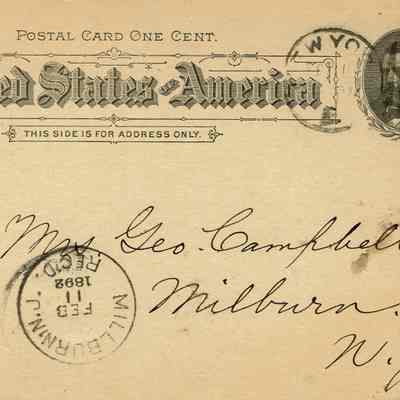 POSTAL CARD ONE CENT.
ed States of America
THIS SIDE IS FOR ADDRESS ONLY.
W YO
Mrs Geo. Campbell
Milburn.
N.J
MILLBURN, N.J.
FEB
11
1892
REC'D.